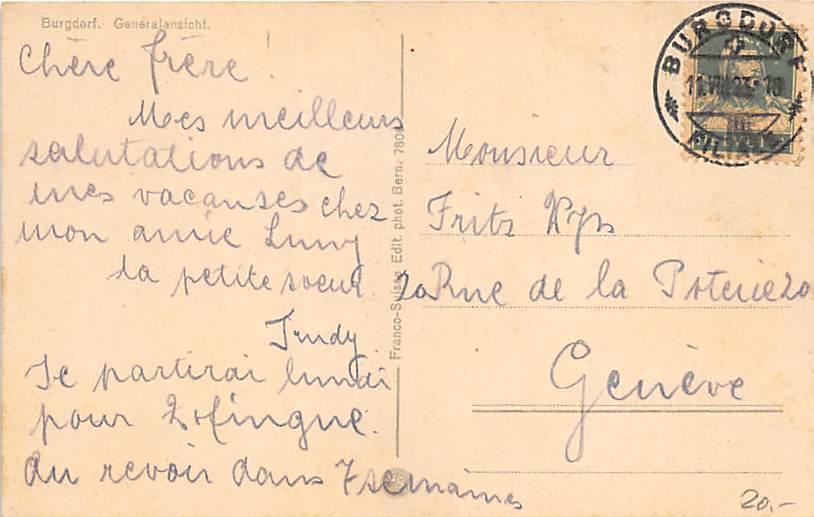 Burgdorf. Generalansicht.
Chère frère!
Mes meilleurs
salutations de
mes vacanses chez
mon amie Luny
la petite soeur
Trudy
Je partirai lundi
pour Zofingue.
Au revoir dans 7 semaines
Franco-Suisse Edit. phot. Bern. 780
BURGDORF
FILIALE
Monsieur
Fritz
20 Rue de la Poterie 20
Genève
20.-